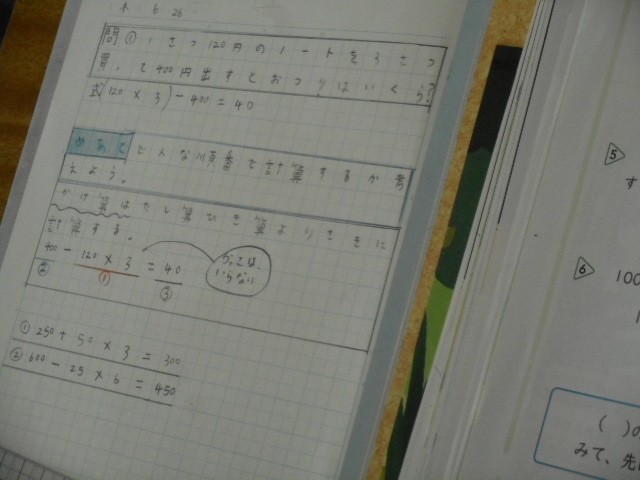 6 26
問 ① 1さつ120円のノートを3さつ
買って400円出すとおつりはいくら?
式(120×3)-400=40
めあて どんな順番で計算するか考
えよう。
かけ算はたし算ひき算よりさきに
計算する。
400-120×3=40
② ① ③
かっこは、
いらない
①250+50×3=300
②600-25×6=450
5
す
6
100
1
( )の
みて、先に